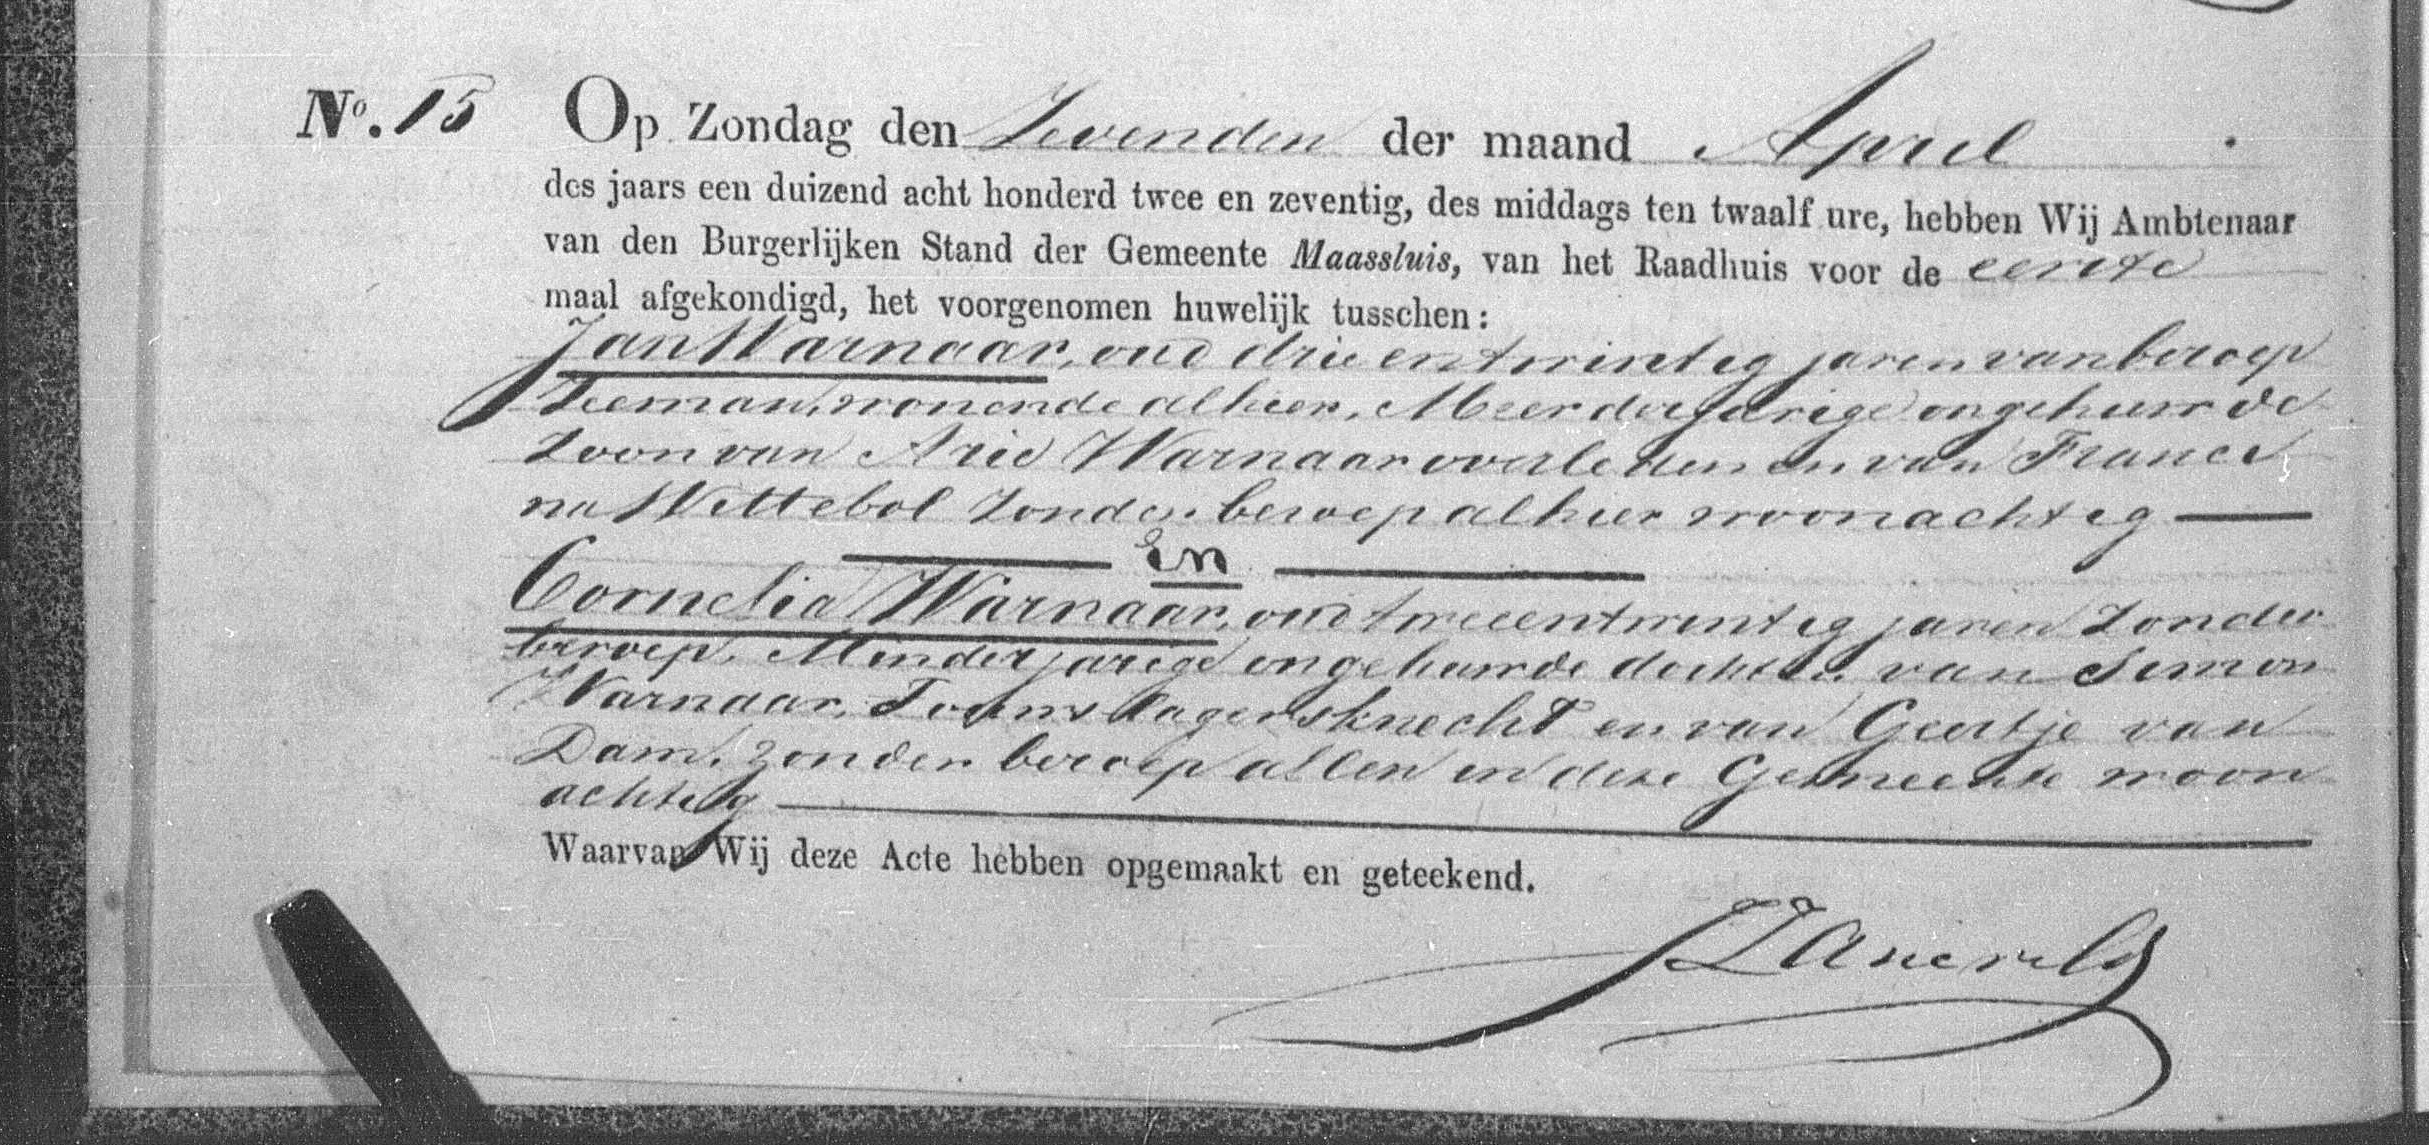 No. 15 Op Zondag den Zevenden der maand April
des jaars een duizend acht honderd twee en zeventig, des middags ten twaalf ure, hebben Wij Ambtenaar
van den Burgerlijken Stand der Gemeente Maassluis, van het Raadhuis voor de eerste
maal afgekondigd, het voorgenomen huwelijk tusschen:
Jan Warnaar, oud drie en twintig jaren van beroep
Zeeman, wonende alhier, Meerderjarige ongehuwde
Zoon van Arie Warnaar overleden en van Franci
na Wittebol Zonder beroep alhier woonachtig
En
Cornelia Warnaar, oud twee en twintig jaren Zonder
beroep, Minderjarige ongehuwde dochter van Simon
Warnaar, Touwslagersknecht en van Geertje van
Dam, zonder beroep allen in deze Gemeente woon
achtig
Waarvan Wij deze Acte hebben opgemaakt en geteekend.